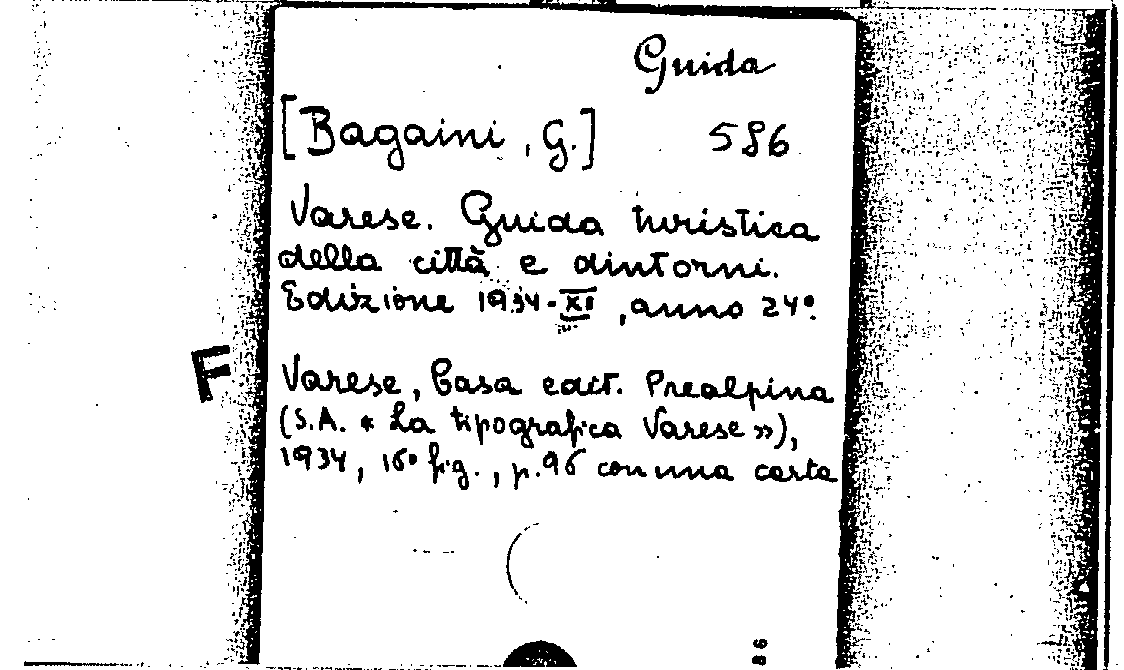 Guida
[Bagaini, G.] 586
Varese. Guida turistica
della città e dintorni.
Edizione 1934-XII, anno 24°.
F
Varese, Casa edit. Prealpina
(S.A. « La tipografica Varese »),
1934, 16° fig., p. 96 con una carta
86